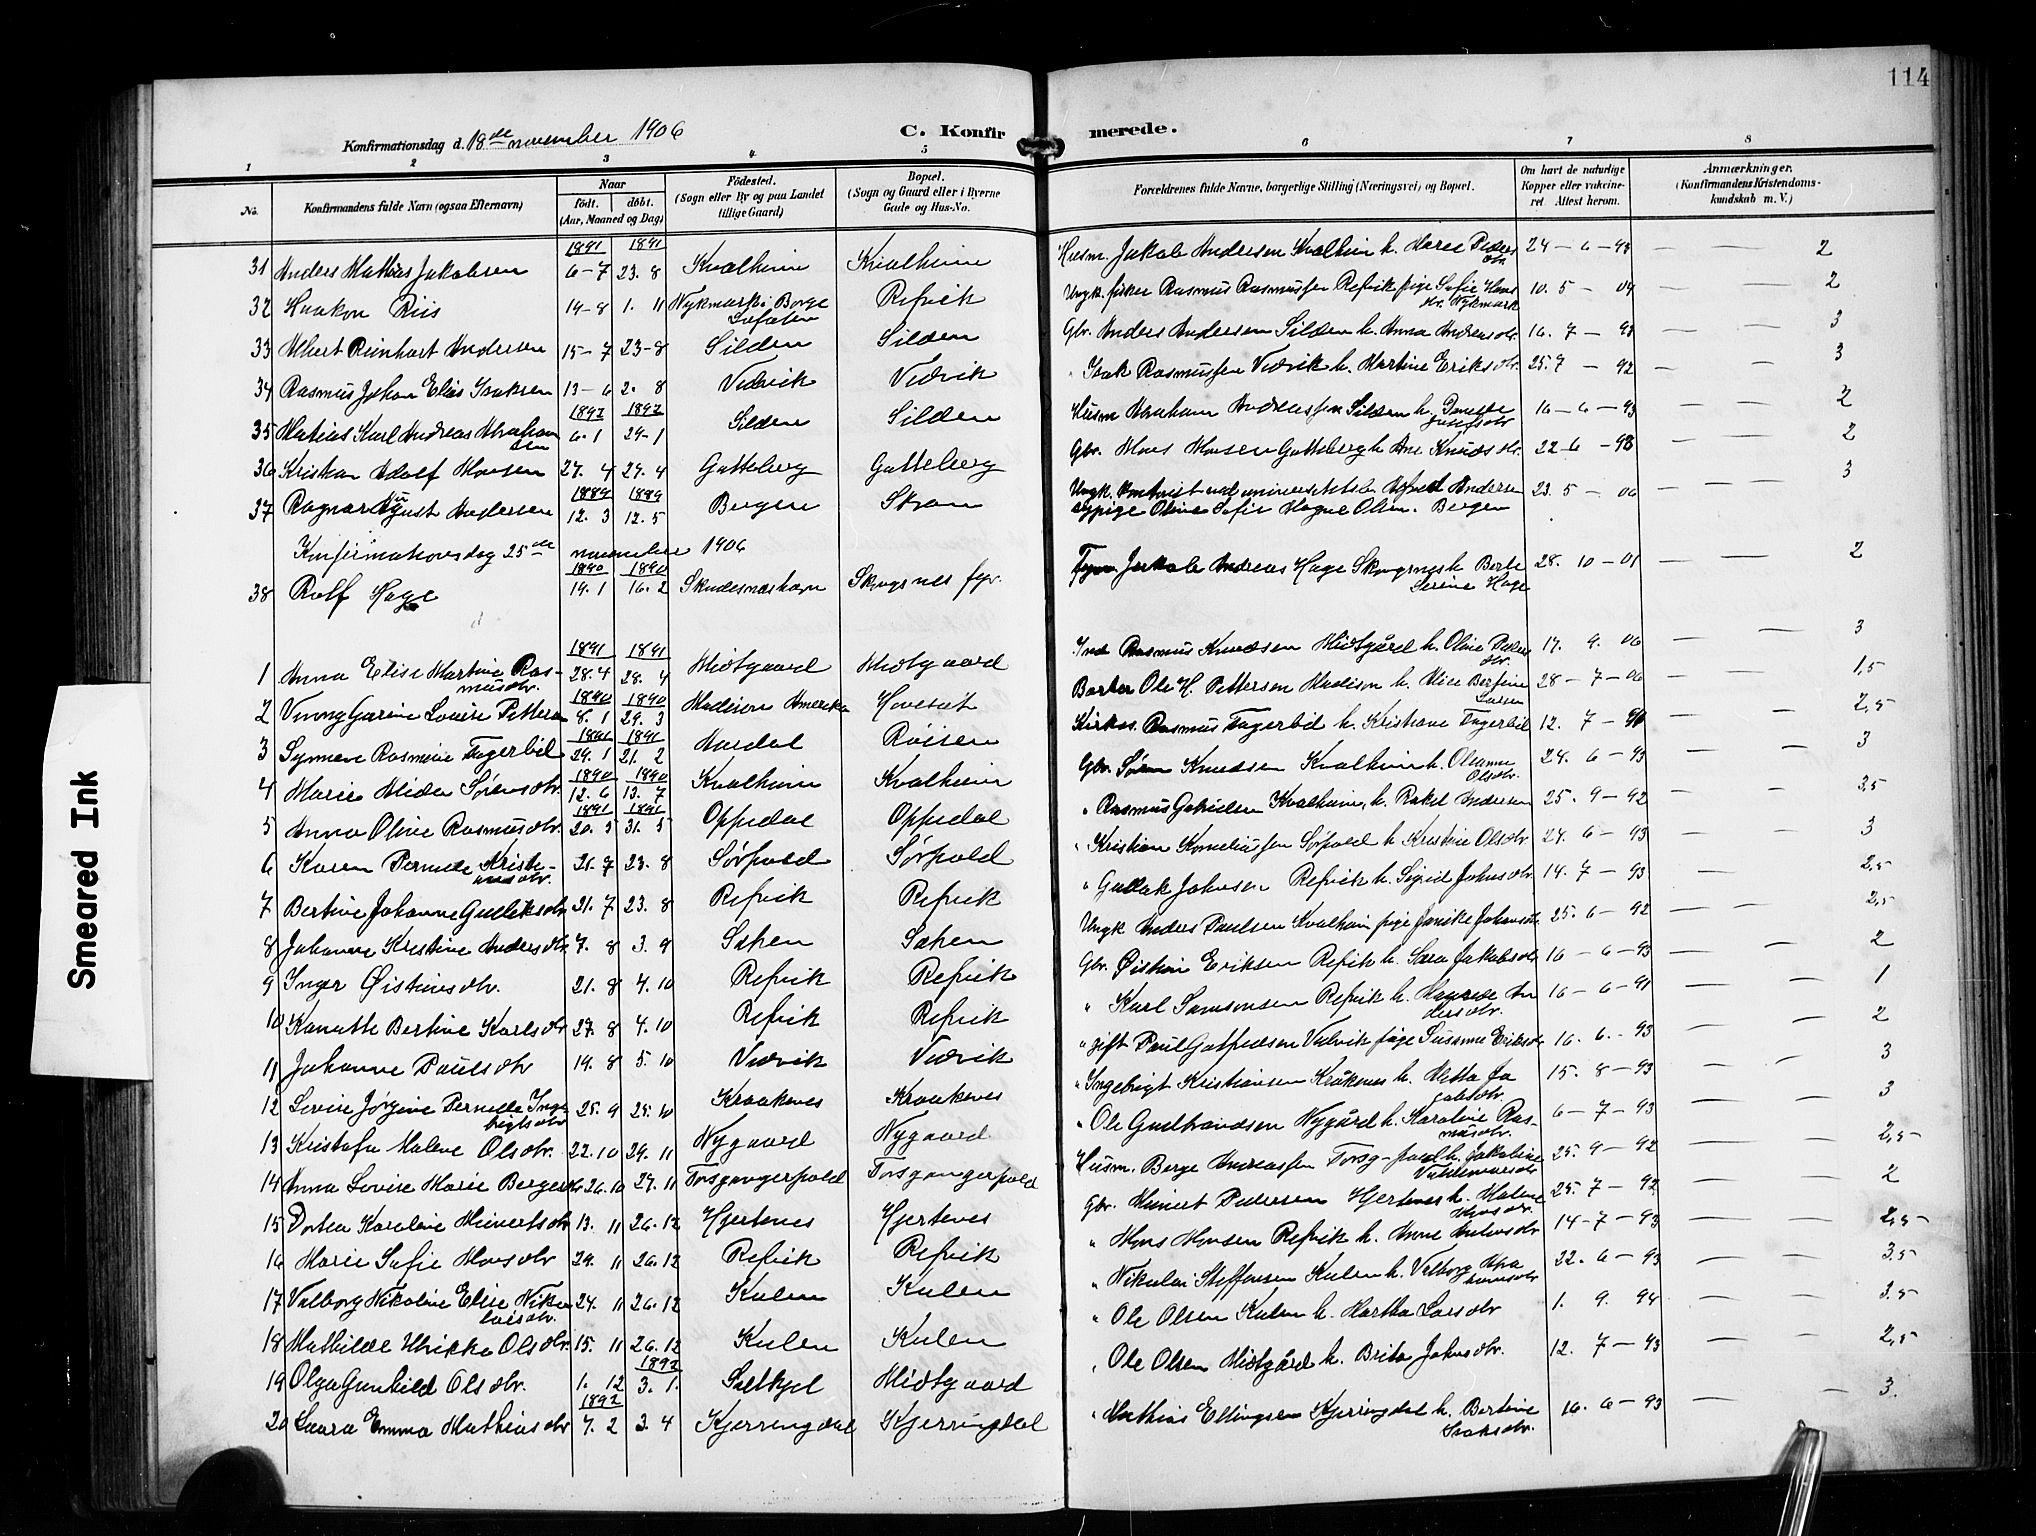 114
Smeared Ink
Konfirmationsdag d. 18de november 1906
C. Konfirmerede.
1 2 3 4 5 6 7 8
No. Konfirmandens fulde Navn (ogsaa Efternavn) Naar födt. döbt. (Aar, Maaned og Dag) Födested. (Sogn eller By og paa Landet tillige Gaard) Bopæl. (Sogn og Gaard eller i Byerne Gade og Hus-No. Forældrenes fulde Navne, borgerlige Stilling (Næringsvei) og Bopæl. Om havt de naturlige Kopper eller vakcineret Attest herom. Anmærkninger. (Konfirmandens Kristendomskundskab m. V.)
1891 1891
31 Anders Mathias Jakobsen 6-7 23.8 Kvalheim Kvalheim Husm. Jakob Andersen Kvalheim h. Maren Peders dtr. 24-6-93 — — 2
32 Haakon Riis 14-8 1.11 Nykmark i Borge Lofoten Refvik Ungk. fisker Rasmus Rasmussen Refvik pige Sofie Hans dtr. Nykmark 10.5-04 — — 2
33 Albert Reinhart Andersen 15-7 23-8 Silden Silden Gbr. Anders Andersen Silden h. Anna Andreasdtr. 16.7-93 — — 3
34 Rasmus Johan Elias Isaksen 13-6 2.8 Vedvik Vedvik " Isak Rasmussen Vedvik h. Martine Eriksdtr. 25.9-92 — — 3
1892 1892
35 Matias Karl Andreas Abraham sen 6.1 24-1 Silden Silden Husm Abraham Andreassen Silden h. Josefsdtr 16-6-93 — — 2
36 Kristian Adolf Hansen 27.4 24.4 Gotteberg Gotteberg Gbr. Hans Hansen Gotteberg h. Ane Knudsdtr. 22-6-93 — — 2
1889 1889
37 Ragnar August Andersen 12.3 12.5 Bergen Skram Ungk. ved universitetsb. Alfred Andersen sypige Oline Sofie Olsen. Bergen 23.5-06 — — 3
Konfirmationsdag 25de november 1906
1890 1890
38 Rolf Hage 19.1 16.2 Skudesneshavn Skongsnes fyr. Fyrv. Jakob Andreas Hage Skongsnes h. Berte Serine Hage 28.10-01 — — 2
1891 1891
1 Anna Elise Martine Rasmusdtr. 28.4 28.4 Midtgaard Midtgaard Ind. Rasmus Knudsen Midtgård h. Oline Peders dtr. 17.9.06 — — 3
1890 1890
2 Louise Petterse 8.1 29.3 Madison Amerika Hovesæt Barber Ole H. Pettersen Madison h. Alice Bertine Larsen 28-7-06 — — 1,5
1891 1891
3 Synneve Rasmine Fagerbil 24.1 21.2 Aardal Röisen Kirkes. Rasmus Fagerbil h. Kristiane Fagerbil 12.7-91 — — 2,5
1890 1890
4 Marie Alida Sørensdtr. 12.6 13.7 Kvalheim Kvalheim Gbr. Søren Knudsen Kvalheim h. Oleanne Olsdtr. 24.6-93 — — 3
1891 1891
5 Anna Oline Rasmusdtr. 20.5 31.5 Oppedal Oppedal " Rasmus Gabrielsen Kvalheim, h. Rakel Andersen 25.9-92 — — 3,5
6 Karen Pernede Kristi-ansdtr. 21.7 23.8 Sørpold Sørpold " Kristian Korneliussen Sørpold h. Kristine Olsdtr 24.6-93 — — 3
7 Bertine Johanne Gulliksdtr 21.7 23.8 Refvik Refvik " Gullak Johnsen Refvik h. Sigrid Johnsdtr. 14.7-93 — — 2,5
8 Johanne Kristine Andersdtr. 7.8 3.9 Ungk Anders Paulsen Kvalheim pige Janike Johansdtr 25.6-92 — — 2,5
9 Inger Øistinsdtr. 21.8 4.10 Refvik Refvik Gbr. Øistein Eriksen Refvik h. Sara Jakobsdtr 16-6-93 — — 2
10 Kanutte Bertine Karlsdtr 27.8 4.10 Refvik Refvik " Karl Samsonsen Refvik h. An dersdtr. 16-6-91 — — 1
11 Johanne Paulsdtr 19.8 5.10 Vedvik Vedvik " gift Paul Gotfredsen Vedvik pige Susanne Eriksdtr 16.6.-93 — — 2
12 Lovise Jørgine Pernelle Inge brigtsdtr 25.9 25.10 Kraakenes Kraakenes " Ingebrigt Kristiansen Kråkenes h. Metta Ja cobsdtr. 15.8-93 — — 3
13 Kristofa Malene Olsdtr. 22.10 29.11 Nygaard Nygaard " Ole Gudbrandsen Nygård h. Karoline Ras-musdtr. 6-7-93 — — 3
14 Anna Lovise Marie Bergesdtr 26.10 27.11 Torsgangerpold Torsgangerpold Husm. Berge Andreassen Torsg-pold h. Jakobine Valdemarsdtr 25.9-92 — — 2,5
15 Dortea Karoline Meinertsdtr 13.11 26.12 Hjertenes Hjertenes Gbr. Meinert Pedersen Hjertenes h. Malene Hansdtr. 25.7-92 — — 2
16 Marie Sofie Hansdtr 29.11 26.12 Refvik Refvik " Hans Hansen Refvik h. Anne Antonsdtr 14-7-93 — — 2,5
17 Valborg Nikoline Elise Niko laisdtr. 24.11 26.12 Kulen Kulen " Nikolai Steffensen Kulen h. Valborg Abra hamsdtr 22.6-93 — — 3,5
18 Mathilde Ulrikke Olsdtr. 15.11 26.12 Kulen Kulen " Ole Olsen Kulen h. Martha Larsdtr 1.9.94 — — 3.5
1892
19 Olga Gunhild Olsdtr. 1.12 3.1. Midtgaard " Ole Olsen Midtgård h. Brita Johnsdtr. 12.7-93 — — 2,5
1892
20 Laura Emma Mathiasdtr 7.2 3.4 Kjerringdal Kjerringdal " Mathias Ellingsen Kjerringdal h. Bertine Isaksdtr. 16.6-93 — — 3.